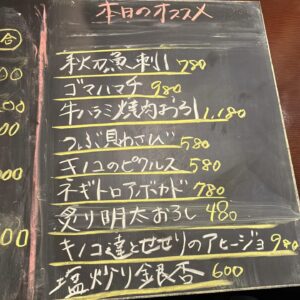 本日のオススメ
秋刀魚刺し 780
ゴマハマチ 980
牛ハラミ焼肉おろし 1,180
つぶ貝わさび 580
キノコのピクルス 580
ネギトロアボカド 780
炙り明太おろし 480
キノコ達とせせりのアヒージョ 980
塩炒り銀杏 600
合
00
00
0
00